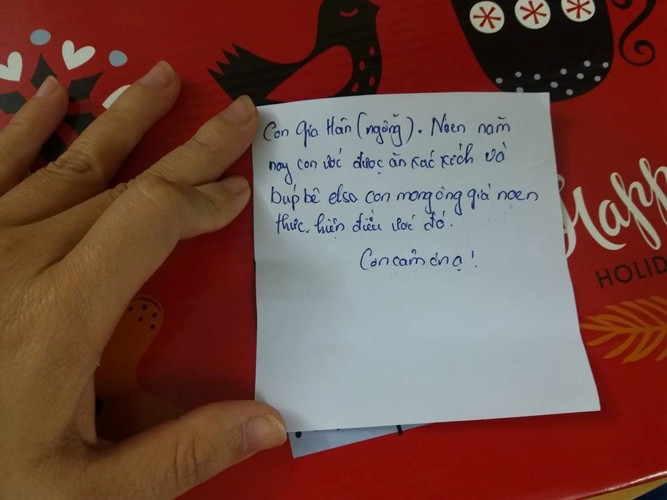 Con Gia Hân (ngỗng). Noen năm
nay con ước được ăn xúc xích và
búp bê elsa con mong ông già noen
thực hiện điều ước đó.
Con cảm ơn ạ!
Happy
HOLID